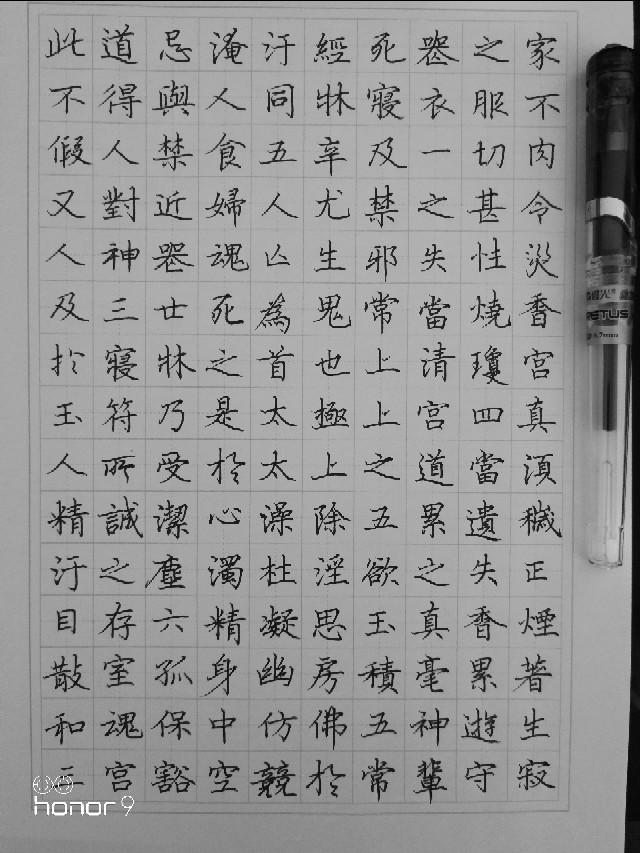 此道忌淹汙經死喪之家
不得與人同牀寢衣服不
假人禁食五辛及一切肉
又對近婦人尤禁之甚令
人神喪魂亡生邪失性災
及三世死為鬼常當燒香
於寢牀之首也上清瓊宮
玉符乃是太極上宮四真
人所受於太上之道當湏
精誠潔心澡除五累遺穢
汙之塵濁杜淫欲之失正
目存六精凝思玉真香煙
散室孤身幽房積毫累著
和魂保中仿佛五神遊生
三宮豁空競於常輩守寂
honor 9